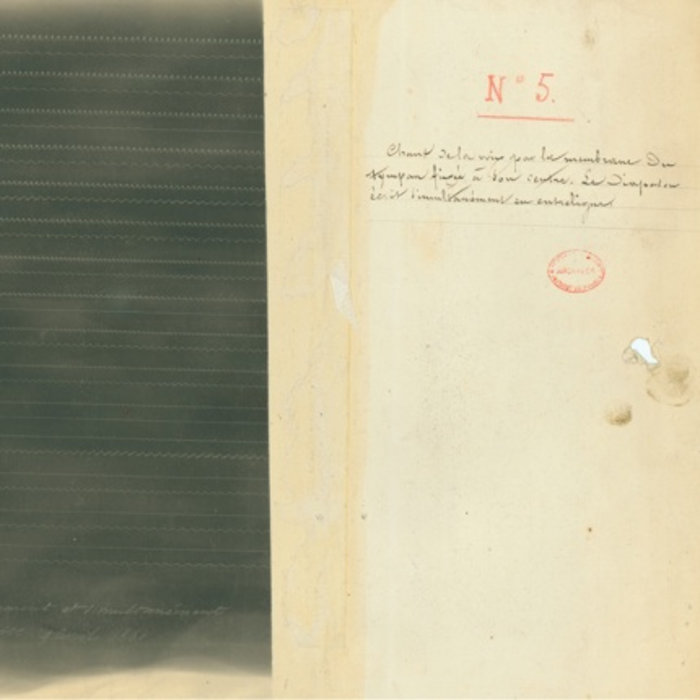 N° 5.
Chant de la voix par la membrane du
tympan fixée à son centre. Le Diapason
écrit simultanément en entreligne
et simultanément